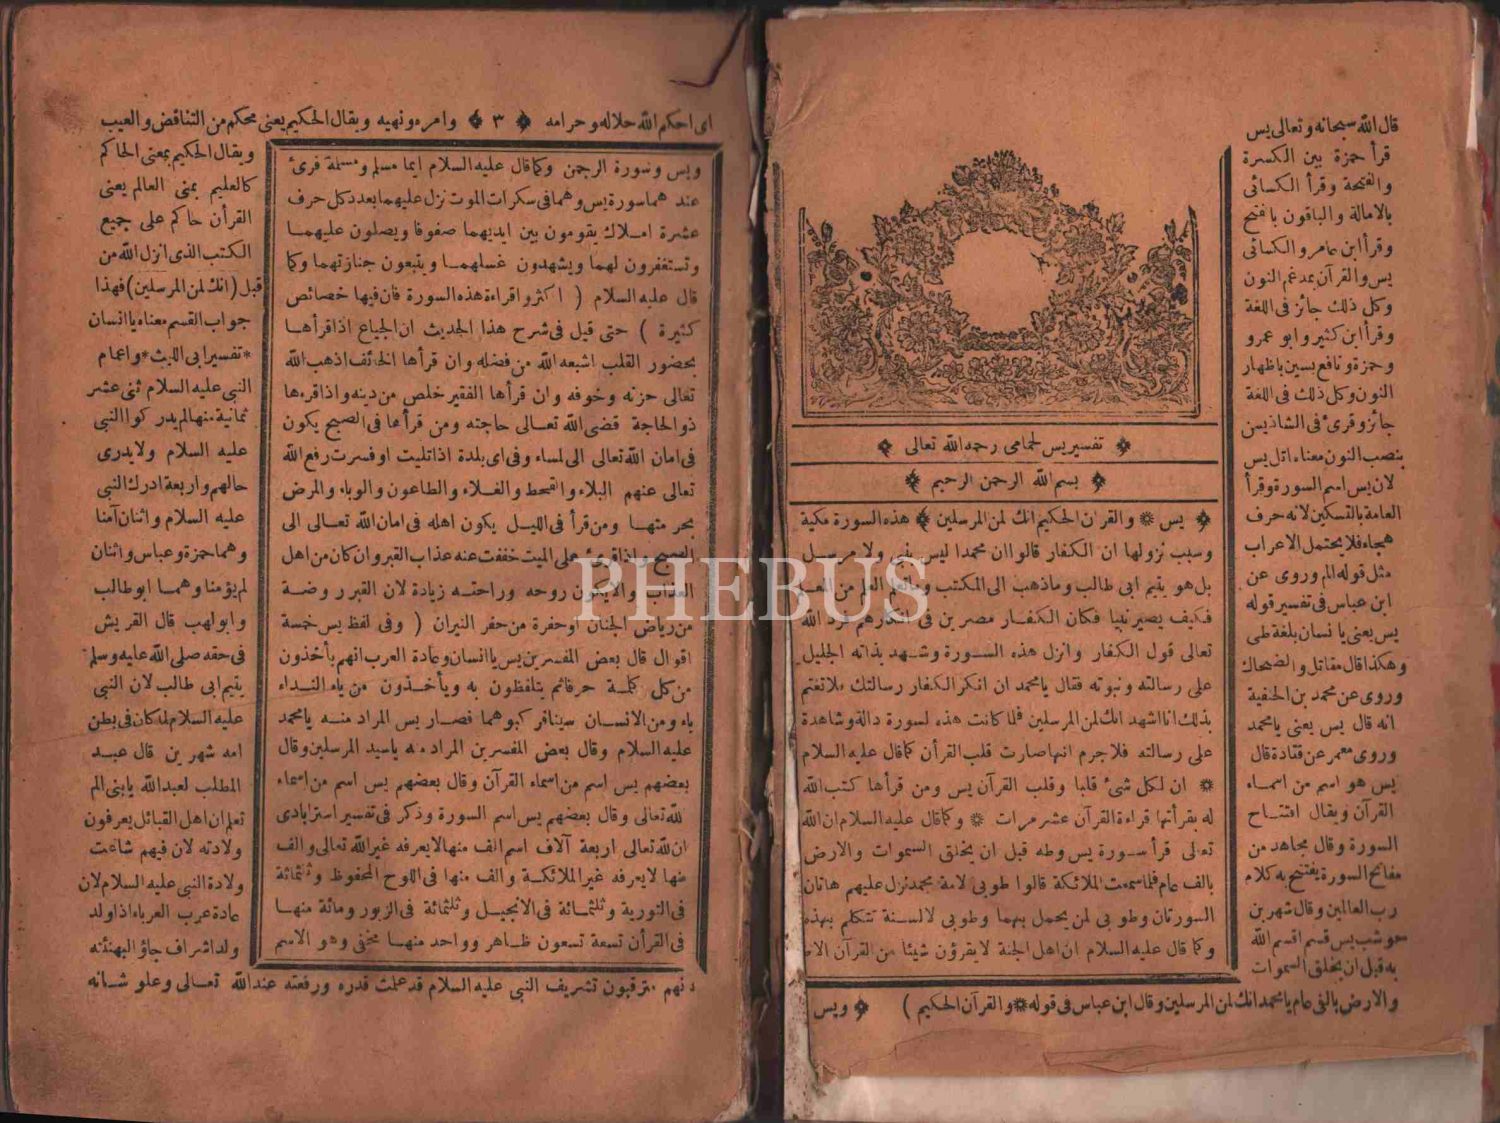 ﴿ تفسير يس لحمامى رحمه الله تعالى ﴾
﴿ بسم الله الرحمن الرحيم ﴾
﴿ يس * والقرآن الحكيم انك لمن المرسلين ﴾ هذه السورة مكية
وسبب نزولها ان الكفار قالوا ان محمدا ليس بنبى ولا مرسل
بل هو يتيم ابى طالب وما ذهب الى المكتب وما تعلم العلم من المعلم
فكيف يصير نبيا فكان الكفار مصرين فى انكارهم فرد الله
تعالى قول الكفار وانزل هذه السورة وشهد بذاته الجليل
على رسالته ونبوته فقال يا محمد ان انكر الكفار رسالتك فلا تغتم
بذلك انا اشهد انك لمن المرسلين فلما كانت هذه لسورة دالة وشاهدة
على رسالته فلا جرم انها صارت قلب القرأن كما قال عليه السلام
* ان لكل شئ قلبا وقلب القرآن يس ومن قرأها كتب الله
له بقرأتها قراءة القرآن عشر مرات * وكما قال عليه السلام ان الله
تعالى قرأ سورة يس وطه قبل ان يخلق السموات والارض
بالف عام فلما سمعت الملائكة قالوا طوبى لامة محمد نزل عليهم هاتان
السورتان وطوبى لمن يحمل بهما وطوبى لالسنة تتكلم بهذه
وكما قال عليه السلام ان اهل الجنة لا يقرؤن شيئا من القرآن الا
قال الله سبحانه وتعالى يس
قرأ حمزة بين الكسرة
والفتحة وقرأ الكسائى
بالامالة والباقون بالفتح
وقرأ ابن عامر والكسائى
يس والقرآن بمدغم النون
وكل ذلك جائز فى اللغة
وقرأ ابن كثير وابو عمرو
وحمزة ونافع بسين باظهار
النون وكل ذلك فى اللغة
جائز وقرئ فى الشاذ يسن
بنصب النون معناه اتل يس
لان يس اسم السورة وقرأ
العامة بالتسكين لانه حرف
هجاء فلا يحتمل الاعراب
مثل قوله الم وروى عن
ابن عباس فى تفسير قوله
يس يعنى يا انسان بلغة طى
وهكذا قال مقاتل والضحاك
وروى عن محمد بن الحنفية
انه قال يس يعنى يا محمد
وروى معمر عن قتادة قال
يس هو اسم من اسماء
القرآن ويقال افتتاح
السورة وقال مجاهد من
مفاتح السورة يفتتح به كلام
رب العالمين وقال شهر بن
حوشب يس قسم اقسم الله
به قبل ان يخلق السموات
والارض بالفى عام يا محمد انك لمن المرسلين وقال ابن عباس فى قوله * والقرآن الحكيم ) ﴿ ويس
اى احكم الله حلاله وحرامه ﴿ ٣ ﴾ وامره ونهيه ويقال الحكيم يعنى محكم من التناقض والعيب
ويس وسورة الرحمن وكما قال عليه السلام ايما مسلم ومسلمة قرئ
عند هما سورة يس وهما فى سكرات الموت نزل عليهما بعدد كل حرف
عشرة املاك يقومون بين ايديهما صفوفا ويصلون عليهما
وتستغفرون لهما ويشهدون غسلهما ويتبعون جنازتهما وكما
قال عليه السلام ( اكثروا قراءة هذه السورة فان فيها خصائص
كثيرة ) حتى قيل فى شرح هذا الحديث ان الجياع اذا قرأها
بحضور القلب اشبعه الله من فضله وان قرأها الخائف اذهب الله
تعالى حزنه وخوفه وان قرأها الفقير خلص من دينه واذا قرءها
ذو الحاجة قضى الله تعالى حاجته ومن قرأها فى الصبح يكون
فى امان الله تعالى الى لمساء وفى اى بلدة اذا تليت او فسرت رفع الله
تعالى عنهم البلاء والقحط والغلاء والطاعون والوباء والمرض
يحر متها ومن قرأ فى الليل يكون اهله فى امان الله تعالى الى
الصبح واذا قرئ على الميت خففت عنه عذاب القبر وان كان من اهل
العذاب والا يكون روحه وراحته زيادة لان القبر روضة
من رياض الجنان او حفرة من حفر النيران ( وفى لفظ يس خمسة
اقوال قال بعض المفسرين يس يا انسان وعادة العرب انهم يأخذون
من كل كلمة حرفا ثم يتلفظون به ويأخذون من ياء النداء
ياء ومن الانسان سينا فركبوهما فصار يس المراد منه يا محمد
عليه السلام وقال بعض المفسرين المراد منه يا سيد المرسلين وقال
بعضهم يس اسم من اسماء القرآن وقال بعضهم يس اسم من اسماء
لله تعالى وقال بعضهم يس اسم السورة وذكر فى تفسير استرابادى
ان لله تعالى اربعة آلاف اسم الف منها لا يعرفه غير الله تعالى والف
منها لا يعرفه غير الملائكة والف منها فى اللوح المحفوظ وثلثمائة
فى التورية وثلثمائة فى الانجيل وثلثمائة فى الزبور ومائة منها
فى القرأن تسعة تسعون ظاهر وواحد منها مخفى وهو الاسم
ويقال الحكيم بمعنى الحاكم
كالعليم بمعنى العالم يعنى
القرأن حاكم على جميع
الكتب الذى انزل الله من
قبل (انك لمن المرسلين) فهذا
جواب القسم معناه يا انسان
*تفسير ابى الليث* واعمام
النبى عليه السلام ثنى عشر
ثمانية منها لم يدركوا النبى
عليه السلام ولا يدرى
حالهم واربعة ادرك النبى
عليه السلام واثنان آمنا
وهما حمزة وعباس واثنان
لم يؤمنا وهما ابو طالب
وابو لهب قال القريش
فى حقه صلى الله عليه وسلم
يتيم ابى طالب لان النبى
عليه السلام لما كان فى بطن
امه شهرين قال عبد
المطلب لعبد الله يا بنى الم
تعلم ان اهل القبائل يعرفون
ولادته لان فيهم شاعت
ولادة النبى عليه السلام لان
عادة عرب العرباء اذا ولد
ولد اشراف جاؤ البهنئته
نهم مترقبون تشريف النبى عليه السلام قد علمت قدره ورفعته عند الله تعالى وعلو شانه
PHEBUS